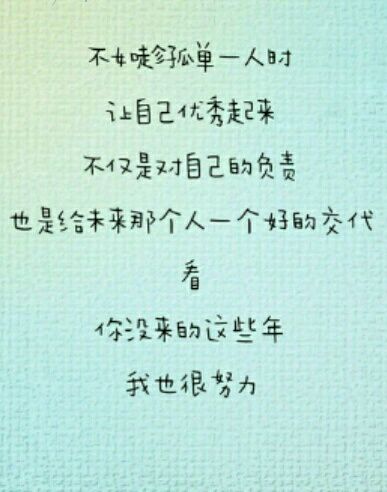 不如唛孤单一人时
让自己优秀起来
不仅是对自己的负责
也是给未来那个人一个好的交代
看
你没来的这些年
我也很努力